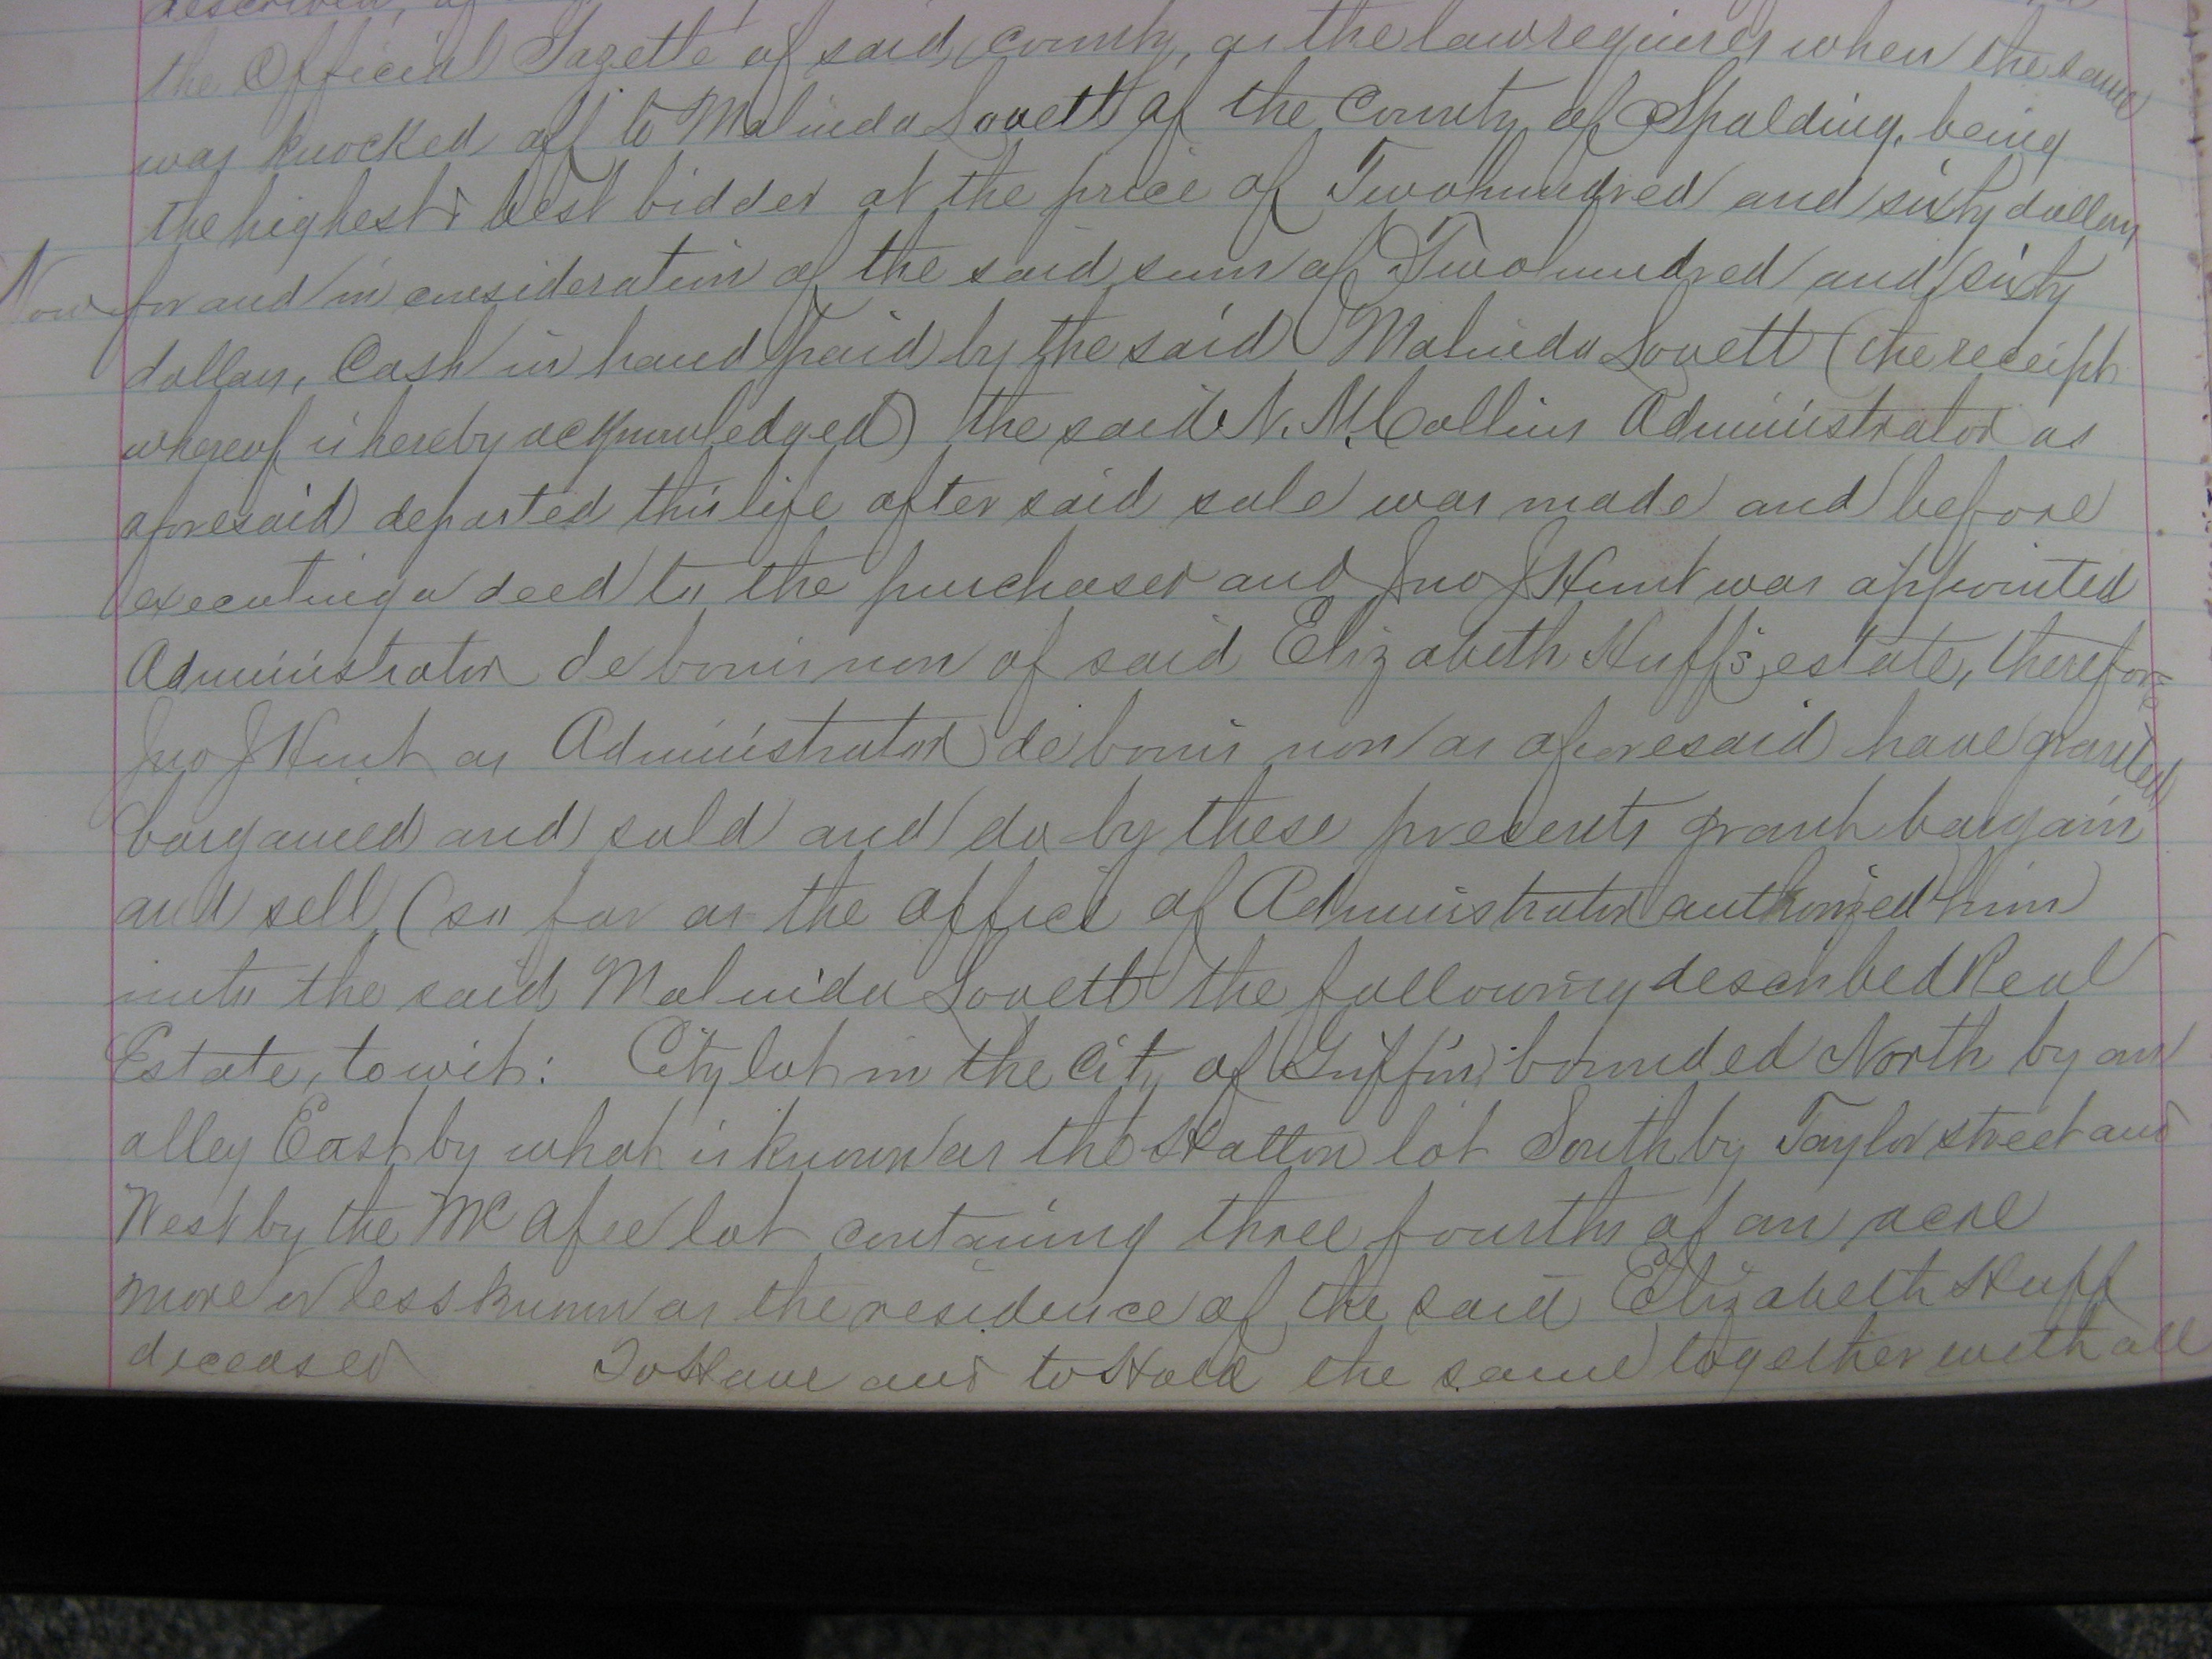 the Official Gazette of said county, as the law requires when the same
was knocked off to Malinda Lovett of the County of Spalding, being
the highest & best bidder at the price of Two hundred and sixty dollars
Now for and in consideration of the said sum of Two hundred and sixty
dollars, Cash in hand paid by the said Malinda Lovett (the receipt
whereof is hereby acknowledged) the said N. M. Collins Administrator as
aforesaid departed this life after said sale was made and before
executing a deed to the purchaser and Jno J Hunt was appointed
Administrator de bonis non of said Elizabeth Huff's estate, therefore
Jno J Hunt as Administrator de bonis non as aforesaid have granted
bargained and sold and do by these presents grant bargain
and sell (so far as the office of Administrator authorized him)
unto the said Malinda Lovett the following described Real
Estate, to wit: City lot in the City of Griffin bounded North by an
alley East by what is known as the Hatton lot South by Taylor street and
West by the McAfee lot containing three fourths of an acre
more or less known as the residence of the said Elizabeth Huff
deceased To Have and to Hold the same together with all